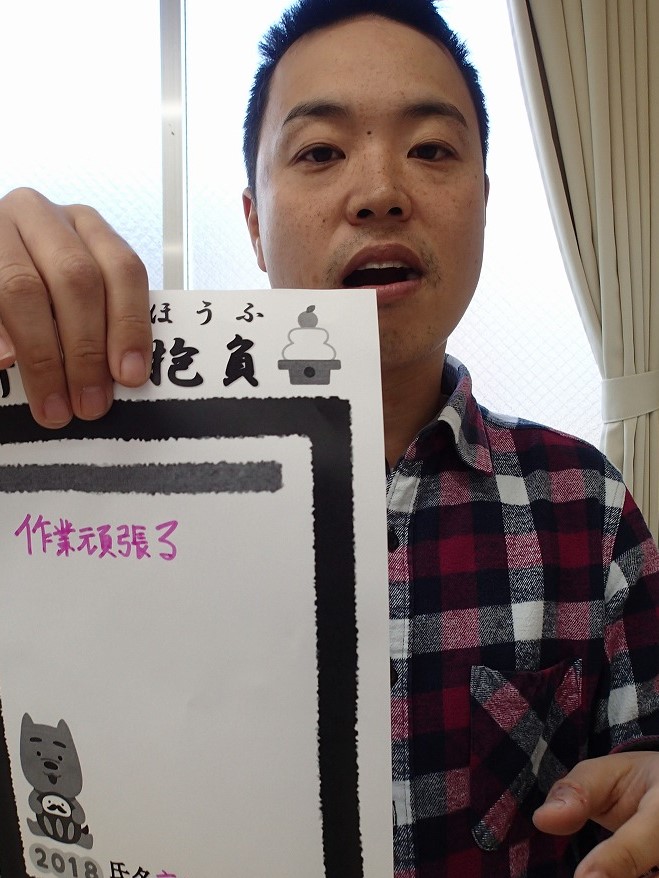 ほうふ
抱負
作業頑張る
2018 氏名